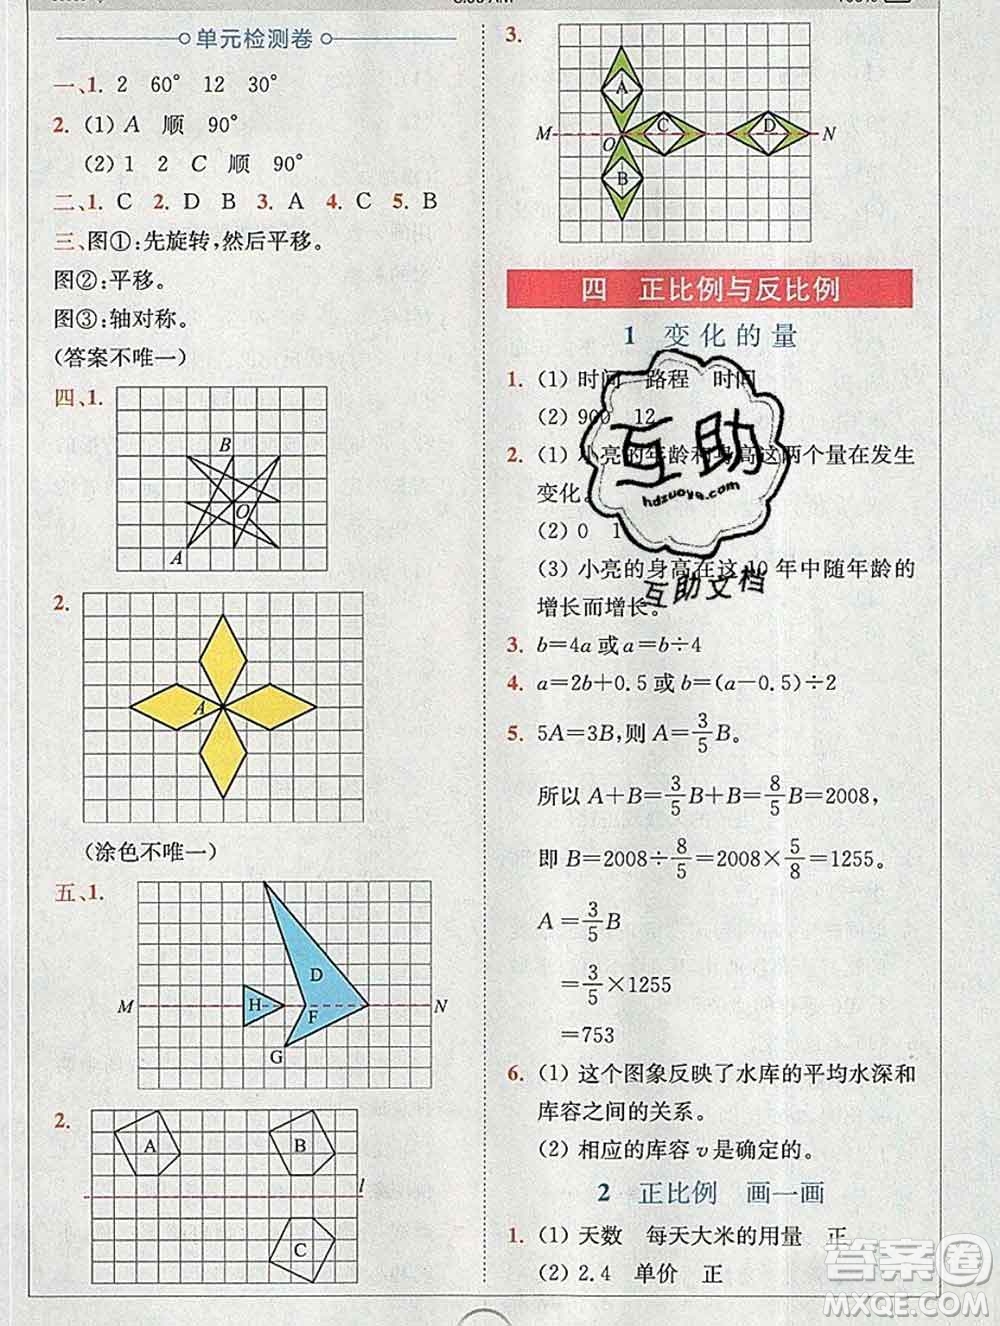 单元检测卷
一、1. 2 60° 12 30°
2. (1) A 顺 90°
(2) 1 2 C 顺 90°
二、1. C 2. D B 3. A 4. C 5. B
三、图①:先旋转,然后平移。
图②:平移。
图③:轴对称。
(答案不唯一)
四、1.
B
O
A
2.
A
(涂色不唯一)
五、1.
D
M H F N
G
2.
A B
l
C
3.
A
M C D N
O
B
四 正比例与反比例
1 变化的量
1. (1) 时间 路程 时间
(2) 900 12
2. (1) 小亮的年龄和身高这两个量在发生
变化。
(2) 0 1
(3) 小亮的身高在这 10 年中随年龄的
增长而增长。
3. b=4a 或 a=b÷4
4. a=2b+0.5 或 b=(a-0.5)÷2
5. 5A=3B,则 A=3/5B。
所以 A+B=3/5B+B=8/5B=2008,
即 B=2008÷8/5=2008×5/8=1255。
A=3/5B
=3/5×1255
=753
6. (1) 这个图象反映了水库的平均水深和
库容之间的关系。
(2) 相应的库容 v 是确定的。
2 正比例 画一画
1. (1) 天数 每天大米的用量 正
(2) 2.4 单价 正
互助
hdzuoye.com
互助文档
答案圈
MXQE.COM